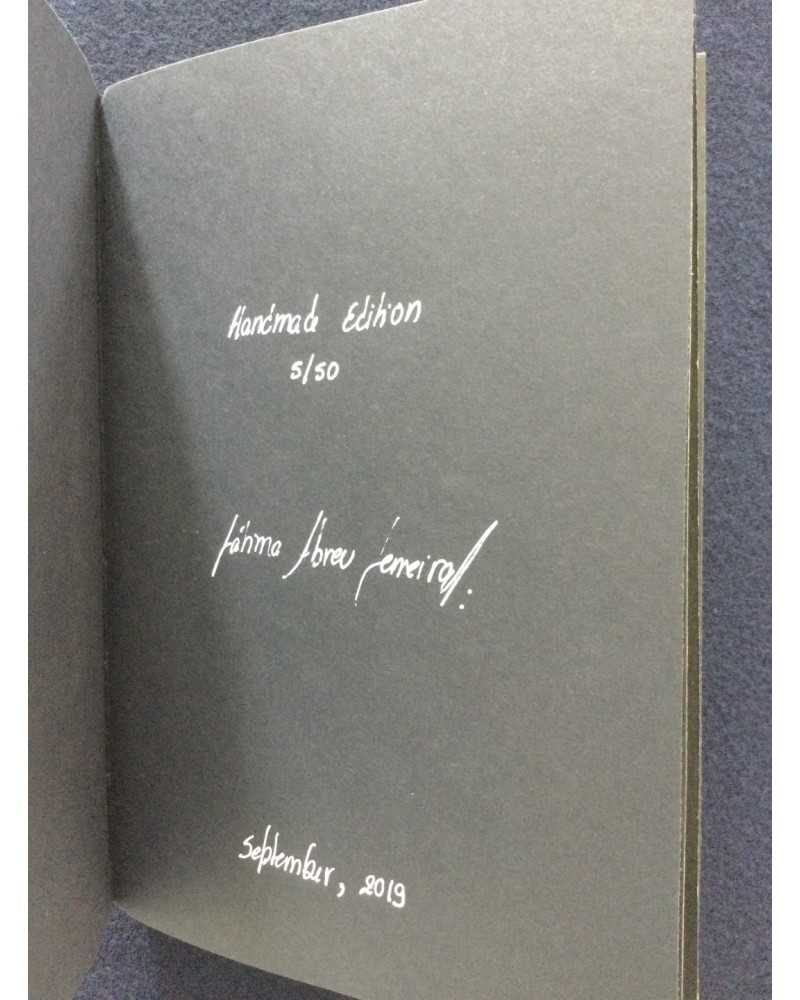 Handmade Edition
5/50
Fátima Abreu Ferreira
September, 2019